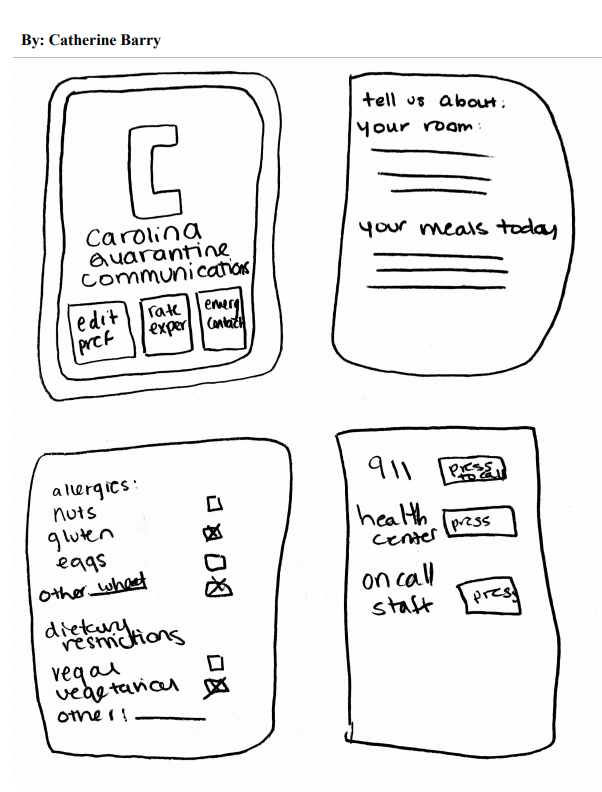 By: Catherine Barry
C
Carolina
Quarantine
Communications
edit
pref
rate
exper
emerg
contact
tell us about:
your room:
your meals today
allergies:
nuts
gluten
eggs
other wheat
dietary
restrictions
vegan
vegetarian
other:
911
press
to call
health
center
press
on call
staff
press